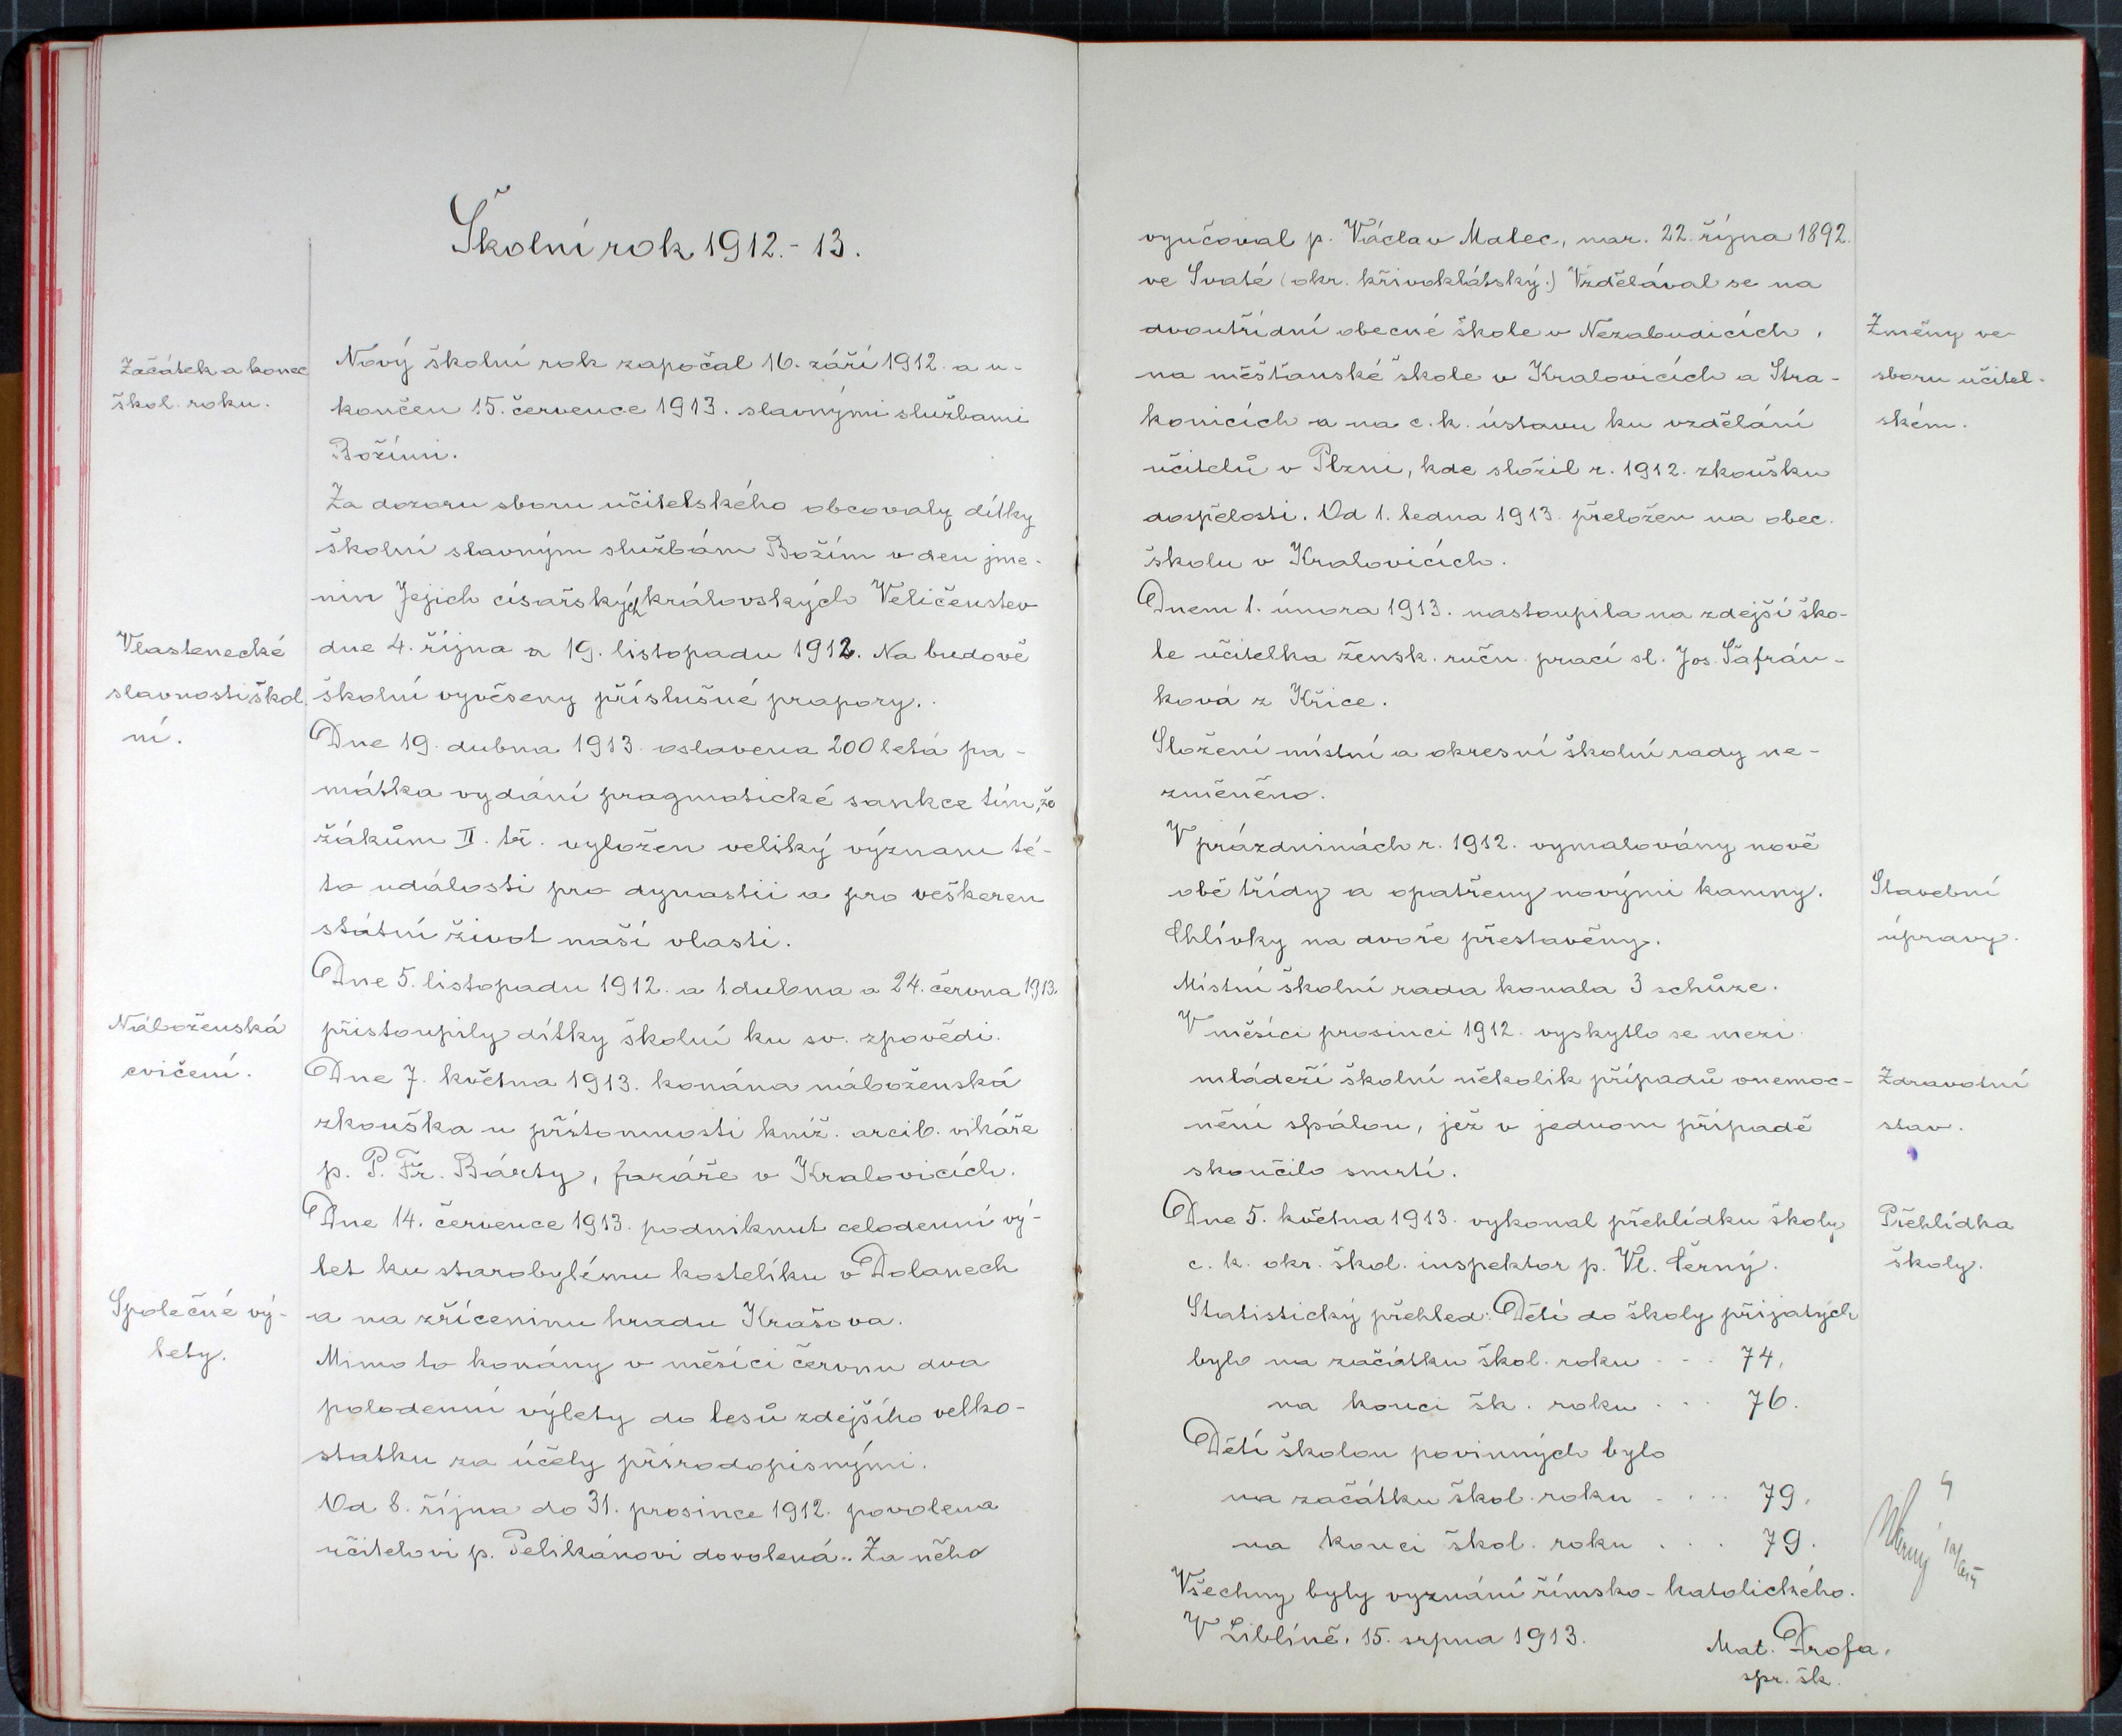 Školní rok 1912.-13.
Začátek a konec
škol. roku.
Nový školní rok započal 16. září 1912. a u-
končen 15. července 1913. slavnými službami
Božími.
Za dozoru sboru učitelského obcovaly dítky
školní slavným službám Božím v den jme-
nin Jejich císařských královských Veličenstev
Vlastenecké
slavnosti škol.
ní.
dne 4. října a 19. listopadu 1912. Na budově
školní vyvěseny příslušné prapory.
Dne 19. dubna 1913. oslavena 200letá pa-
mátka vydání pragmatické sankce tím, že
žákům II. tř. vyložen veliký význam té-
to události pro dynastii a pro veškeren
státní život naší vlasti.
Dne 5. listopadu 1912. a 1 dubna a 24. června 1913.
Náboženská
cvičení.
přistoupily dítky školní ku sv. zpovědi.
Dne 7. května 1913. konána náboženská
zkouška u přítomnosti kníž. arcib. vikáře
p. P. Fr. Bárty, faráře v Kralovicích.
Dne 14. července 1913. podniknut celodenní vý-
let ku starobylému kostelíku v Dolanech
Společné vý-
lety.
a na zříceninu hradu Krašova.
Mimo to konány v měsíci červnu dva
polodenní výlety do lesů zdejšího velko-
statku za účely přírodopisnými.
Od 8. října do 31. prosince 1912. povolena
učitelovi p. Pelikánovi dovolená. Za něho
vyučoval p. Václav Malec, nar. 22. října 1892.
ve Svaté (okr. křivoklátský.) Vzdělával se na
dvoutřídní obecné škole v Nezabudicích,
na měšťanské škole v Kralovicích a Stra-
konicích a na c. k. ústavu ku vzdělání
Změny ve
sboru učitel-
ském.
učitelů v Plzni, kde složil r. 1912. zkoušku
dospělosti. Od 1. ledna 1913. přeložen na obec.
školu v Kralovicích.
Dnem 1. února 1913. nastoupila na zdejší ško-
le učitelka žensk. ručn. prací sl. Jos. Šafrán-
ková z Křice.
Složení místní a okresní školní rady ne-
změněno.
V prázdninách r. 1912. vymalovány nově
obě třídy a opatřeny novými kamny.
Chlívky na dvoře přestavěny.
Stavební
úpravy.
Místní školní rada konala 3 schůze.
V měsíci prosinci 1912. vyskytlo se mezi
mládeží školní několik případů onemoc-
nění spálou, jež v jednom případě
skončilo smrtí.
Zdravotní
stav.
Dne 5. května 1913. vykonal přehlídku školy
c. k. okr. škol. inspektor p. Vl. Černý.
Přehlídka
školy.
Statistický přehled: Dětí do školy přijatých
bylo na začátku škol. roku . . . 74,
na konci šk. roku . . . 76.
Dětí školou povinných bylo
na začátku škol. roku . . . . 79,
na konci škol. roku . . . 79.
Všechny byly vyznání římsko-katolického.
V Liblíně, 15. srpna 1913.
Mat. Drofa,
spr. šk.